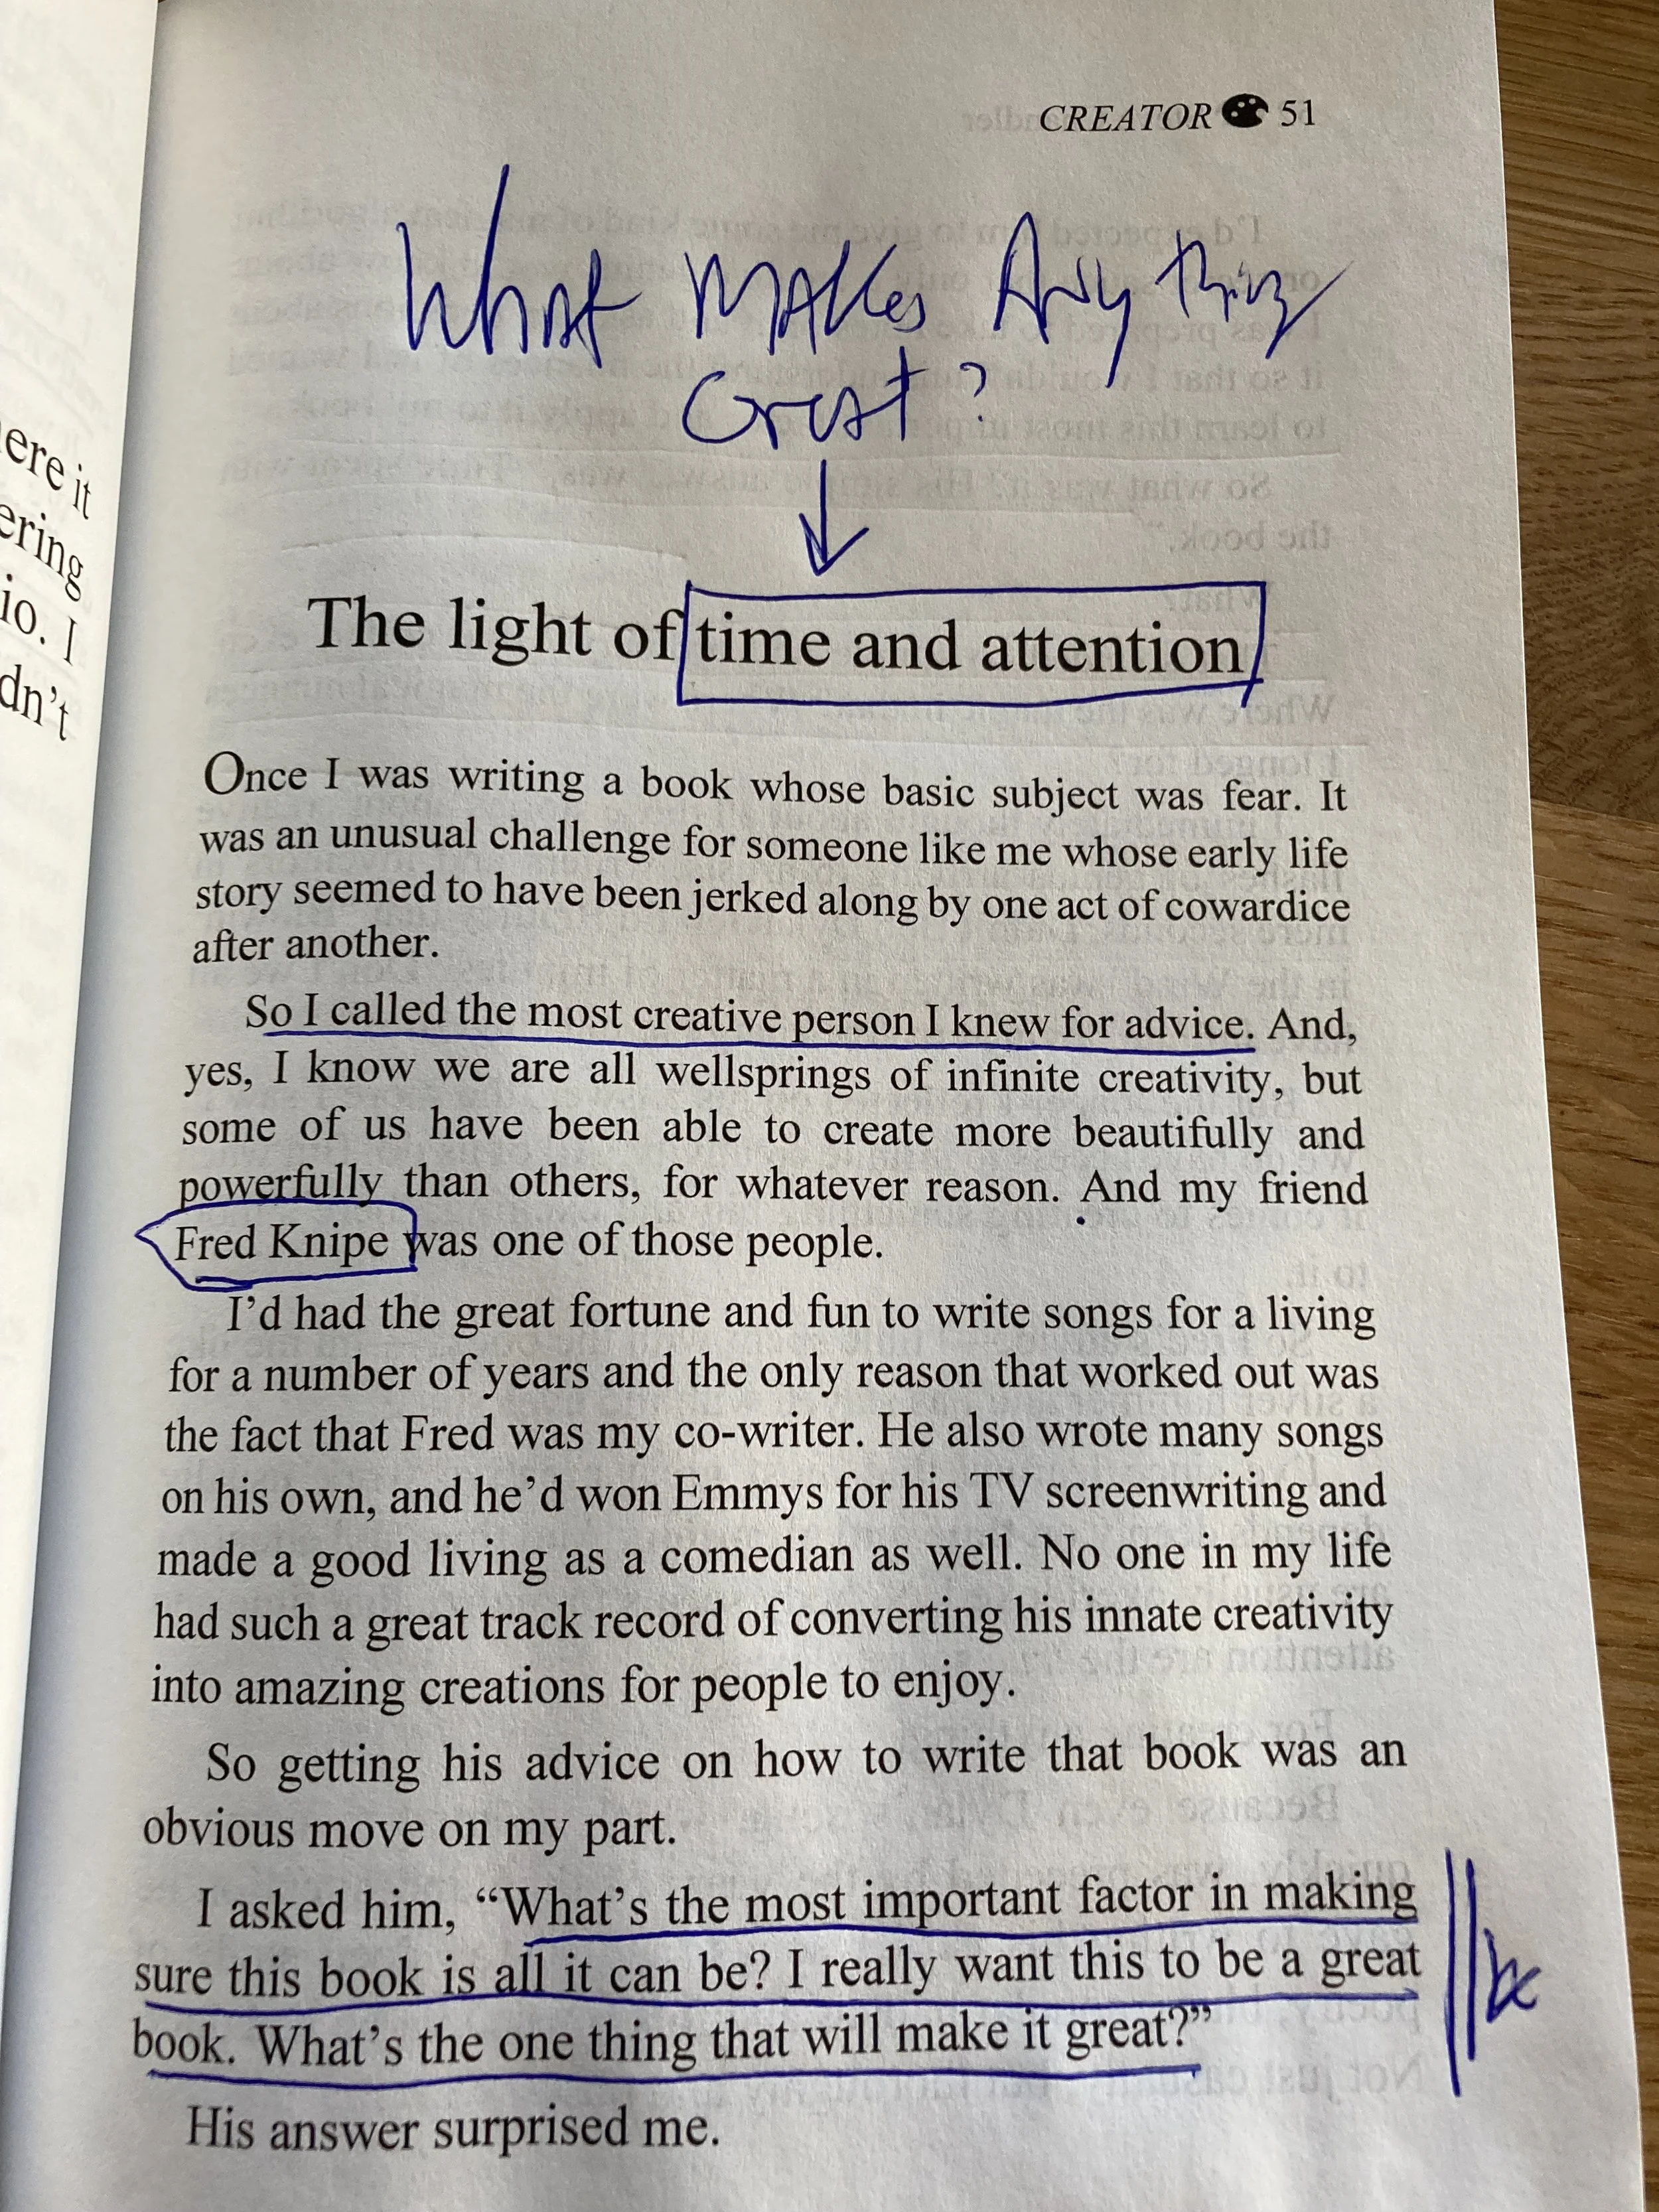 CREATOR 51
What Makes Anything
Great?
The light of time and attention
Once I was writing a book whose basic subject was fear. It
was an unusual challenge for someone like me whose early life
story seemed to have been jerked along by one act of cowardice
after another.
So I called the most creative person I knew for advice. And,
yes, I know we are all wellsprings of infinite creativity, but
some of us have been able to create more beautifully and
powerfully than others, for whatever reason. And my friend
Fred Knipe was one of those people.
I’d had the great fortune and fun to write songs for a living
for a number of years and the only reason that worked out was
the fact that Fred was my co-writer. He also wrote many songs
on his own, and he’d won Emmys for his TV screenwriting and
made a good living as a comedian as well. No one in my life
had such a great track record of converting his innate creativity
into amazing creations for people to enjoy.
So getting his advice on how to write that book was an
obvious move on my part.
I asked him, “What’s the most important factor in making
sure this book is all it can be? I really want this to be a great
book. What’s the one thing that will make it great?”
His answer surprised me.
ere it
ering
io. I
dn’t